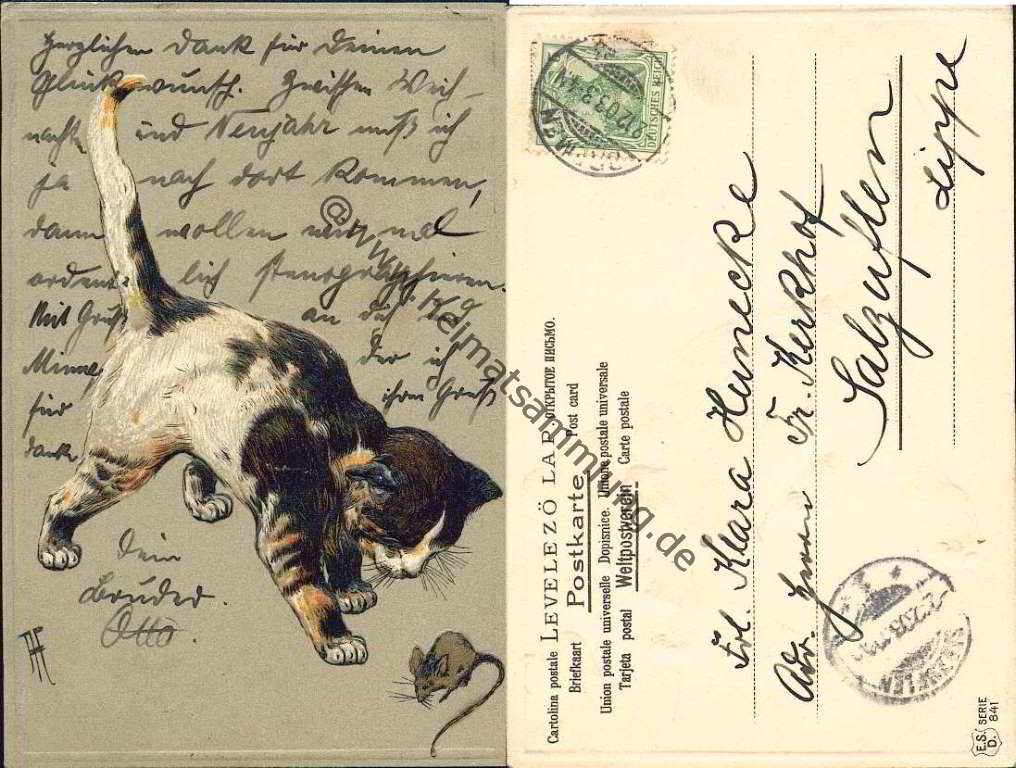 Herzlichen Dank für Deinen
Glückwunsch. Zwischen Weih-
nacht und Neujahr muß ich
ja nach dort kommen,
dann wollen wir mal
ordentlich stenographieren.
Mit Gruß an
Minna der ich
für ihren Gruß
danke
Dein
Bruder.
Otto.
© www.heimatsammlung.de
DEUTSCHES REICH
Cartolina postale LEVELEZÖ LAP ОТКРЫТОЕ ПИСЬМО.
Briefkaart Postkarte Post card
Union postale universelle Dopisnice. Unione postale universale
Tarjeta postal Weltpostverein Carte postale
Frl. Klara Hunecke
Adr. Herrn Fr. Kerkhof
Salzuflen
Lippe
E.S. D. SERIE 841